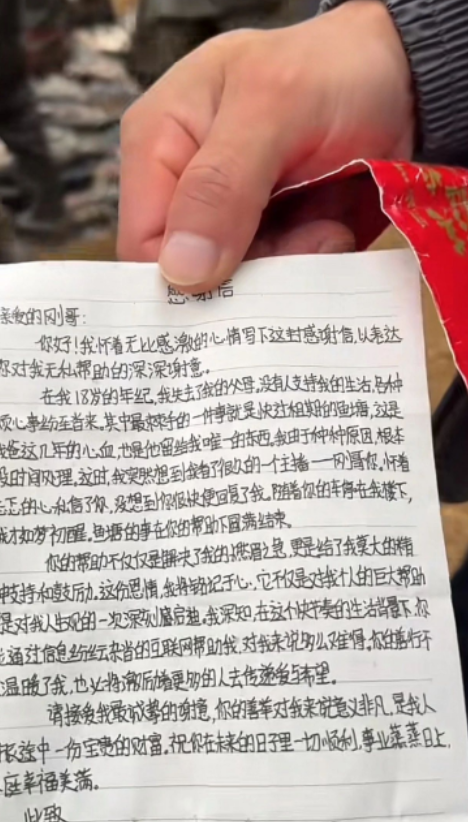 感谢信
亲爱的刚哥：
你好！我怀着无比感激的心情写下这封感谢信，以表达
你对我无私帮助的深深谢意。
在我18岁的年纪，我失去了我的父母，没有人支持我的生活，各种
烦心事纷至沓来。其中最棘手的一件事就是快过租期的鱼塘，这是
我爸这几年的心血，也是他留给我唯一的东西，我由于种种原因，根本
没时间处理。这时，我突然想到我看了很久的一个主播——刚哥你，怀着
忐忑的心私信了你，没想到你很快便回复了我。随着你的车停在我楼下，
我才如梦初醒，鱼塘的事在你的帮助下圆满结束。
你的帮助不仅仅是解决了我的燃眉之急，更是给了我莫大的精
神支持和鼓励。这份恩情，我将铭记于心，它不仅是对我个人的巨大帮助
是对我人生观的一次深刻启迪。我深知，在这个快节奏的生活背景下，你
能通过信息纷纭杂沓的互联网帮助我，对我来说多么难得。你的善行不
温暖了我，也必将激励着更多的人去传递爱与希望。
请接受我最诚挚的谢意，你的善举对我来说意义非凡，是我人
旅途中一份宝贵的财富。祝你在未来的日子里一切顺利，事业蒸蒸日上，
庭幸福美满。
此致